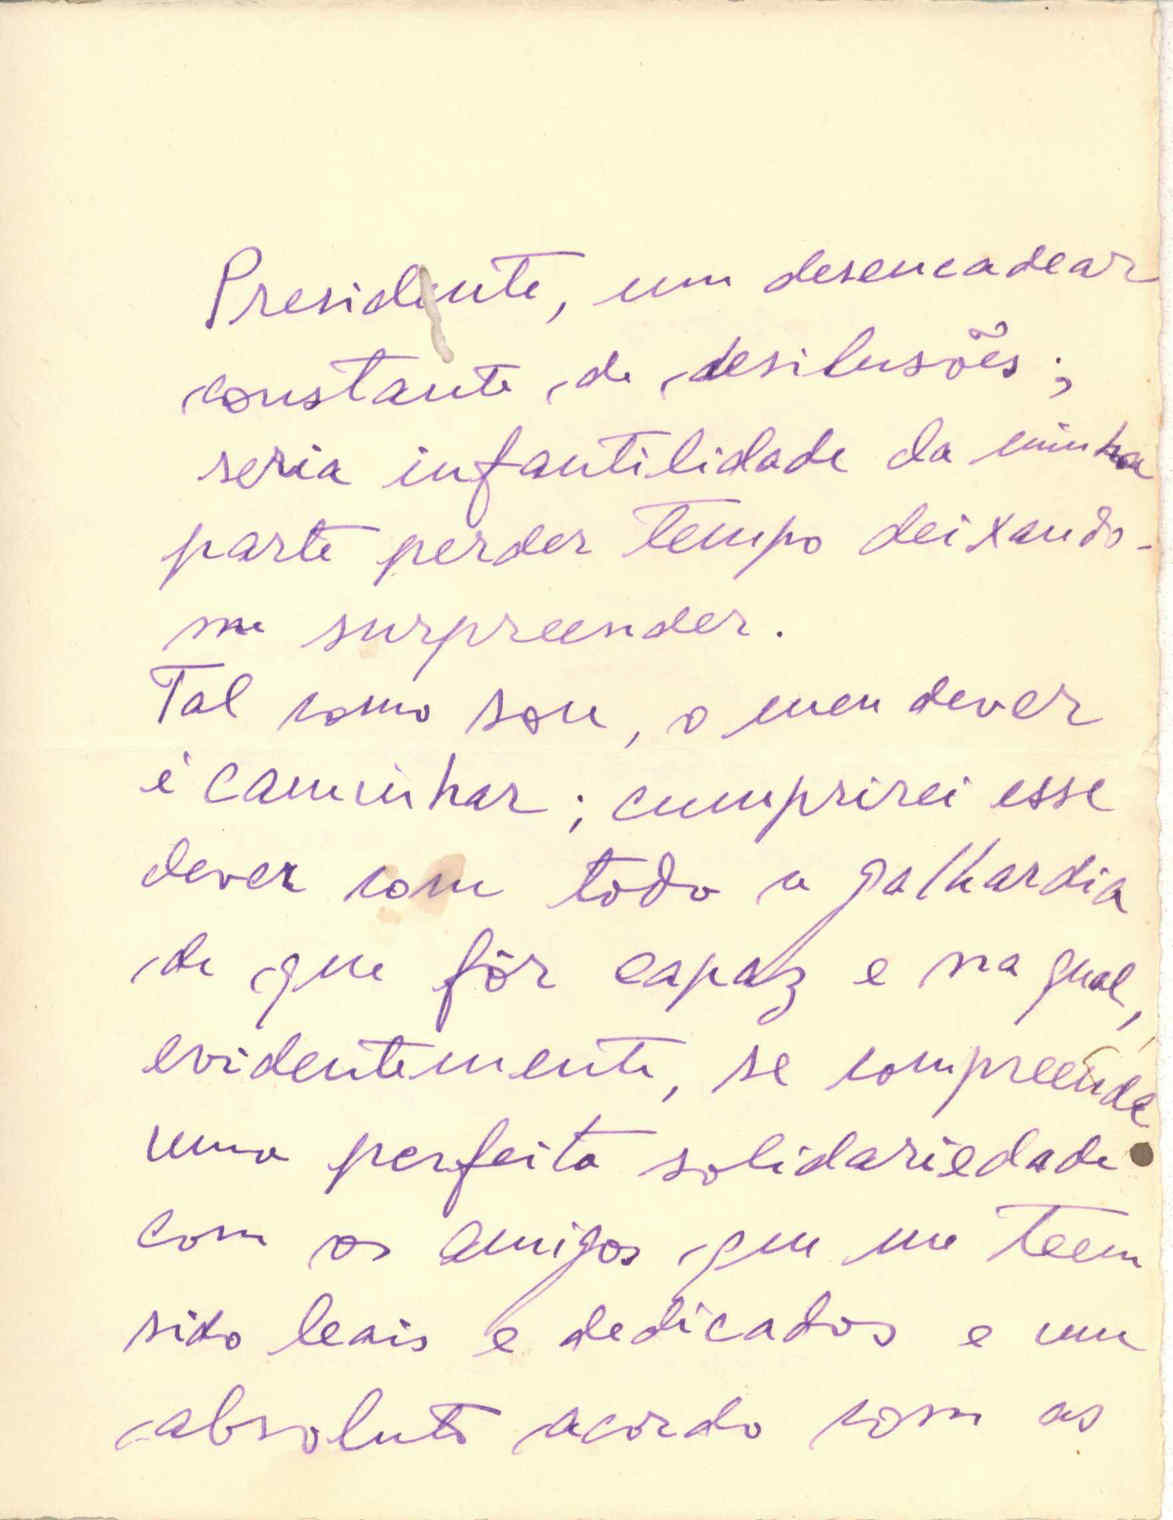 Presidente, um desencadear
constante de desilusões;
seria infantilidade da minha
parte perder tempo deixando-
me surpreender.
Tal como sou, o meu dever
é caminhar; cumprirei esse
dever com toda a galhardia
de que fôr capaz e na qual,
evidentemente, se compreende
uma perfeita solidariedade
com os amigos que me teem
sido leais e dedicados e um
absoluto acordo com as